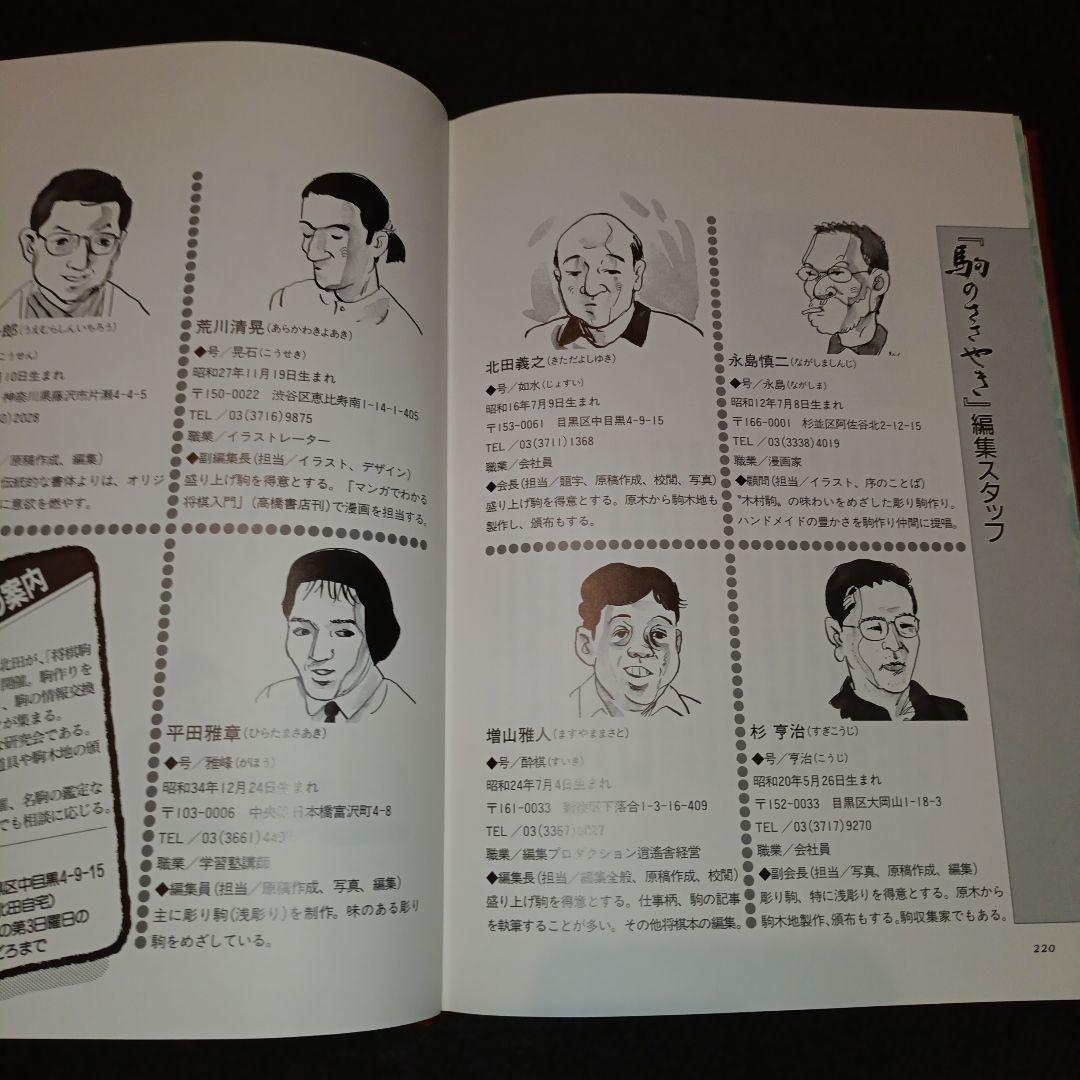 『駒のささやき』編集スタッフ
北田義之(きただよしゆき)
◆号/如水(じょすい)
昭和16年7月9日生まれ
〒153-0061 目黒区中目黒4-9-15
TEL/03(3711)1368
職業/会社員
◆会長(担当/題字、原稿作成、校閲、写真)
盛り上げ駒を得意とする。原木から駒木地も
製作し、頒布もする。
永島慎二(ながしましんじ)
◆号/永島(ながしま)
昭和12年7月8日生まれ
〒166-0001 杉並区阿佐谷北2-12-15
TEL/03(3338)4019
職業/漫画家
◆顧問(担当/イラスト、序のことば)
〝木村駒〟の味わいをめざした彫り駒作り。
ハンドメイドの豊かさを駒作り仲間に提唱。
増山雅人(ますやままさと)
◆号/酔棋(すいき)
昭和24年7月4日生まれ
〒161-0033 新宿区下落合1-3-16-409
TEL/03(3367)
職業/編集プロダクション逍遙舎経営
◆編集長(担当/編集全般、原稿作成、校閲)
盛り上げ駒を得意とする。仕事柄、駒の記事
を執筆することが多い。その他将棋本の編集。
杉 亨治(すぎこうじ)
◆号/亨治(こうじ)
昭和20年5月26日生まれ
〒152-0033 目黒区大岡山1-18-3
TEL/03(3717)9270
職業/会社員
◆副会長(担当/写真、原稿作成、編集)
彫り駒、特に浅彫りを得意とする。原木から
駒木地製作、頒布もする。駒収集家でもある。
220
荒川清晃(あらかわきよあき)
◆号/晃石(こうせき)
昭和27年11月19日生まれ
〒150-0022 渋谷区恵比寿南1-14-1-405
TEL/03(3716)9875
職業/イラストレーター
◆副編集長(担当/イラスト、デザイン)
盛り上げ駒を得意とする。『マンガでわかる
将棋入門』(高橋書店刊)で漫画を担当する。
郎(うえむらしんいちろう)
こうせん)
月10日生まれ
神奈川県藤沢市片瀬4-4-5
0)2028
/原稿作成、編集)
伝統的な書体よりは、オリジ
に意欲を燃やす。
平田雅章(ひらたまさあき)
◆号/雅峰(がほう)
昭和34年12月24日生まれ
〒103-0006 中央区日本橋富沢町4-8
TEL/03(3661)
職業/学習塾講師
◆編集員(担当/原稿作成、写真、編集)
主に彫り駒(浅彫り)を制作。味のある彫り
駒をめざしている。
の案内
北田が、「将棋駒
開催。駒作りを
、駒の情報交換
が集まる。
な研究会である。
道具や駒木地の頒
催、名駒の鑑定な
でも相談に応じる。
黒区中目黒4-9-15
北田自宅)
の第3日曜日の
ごろまで